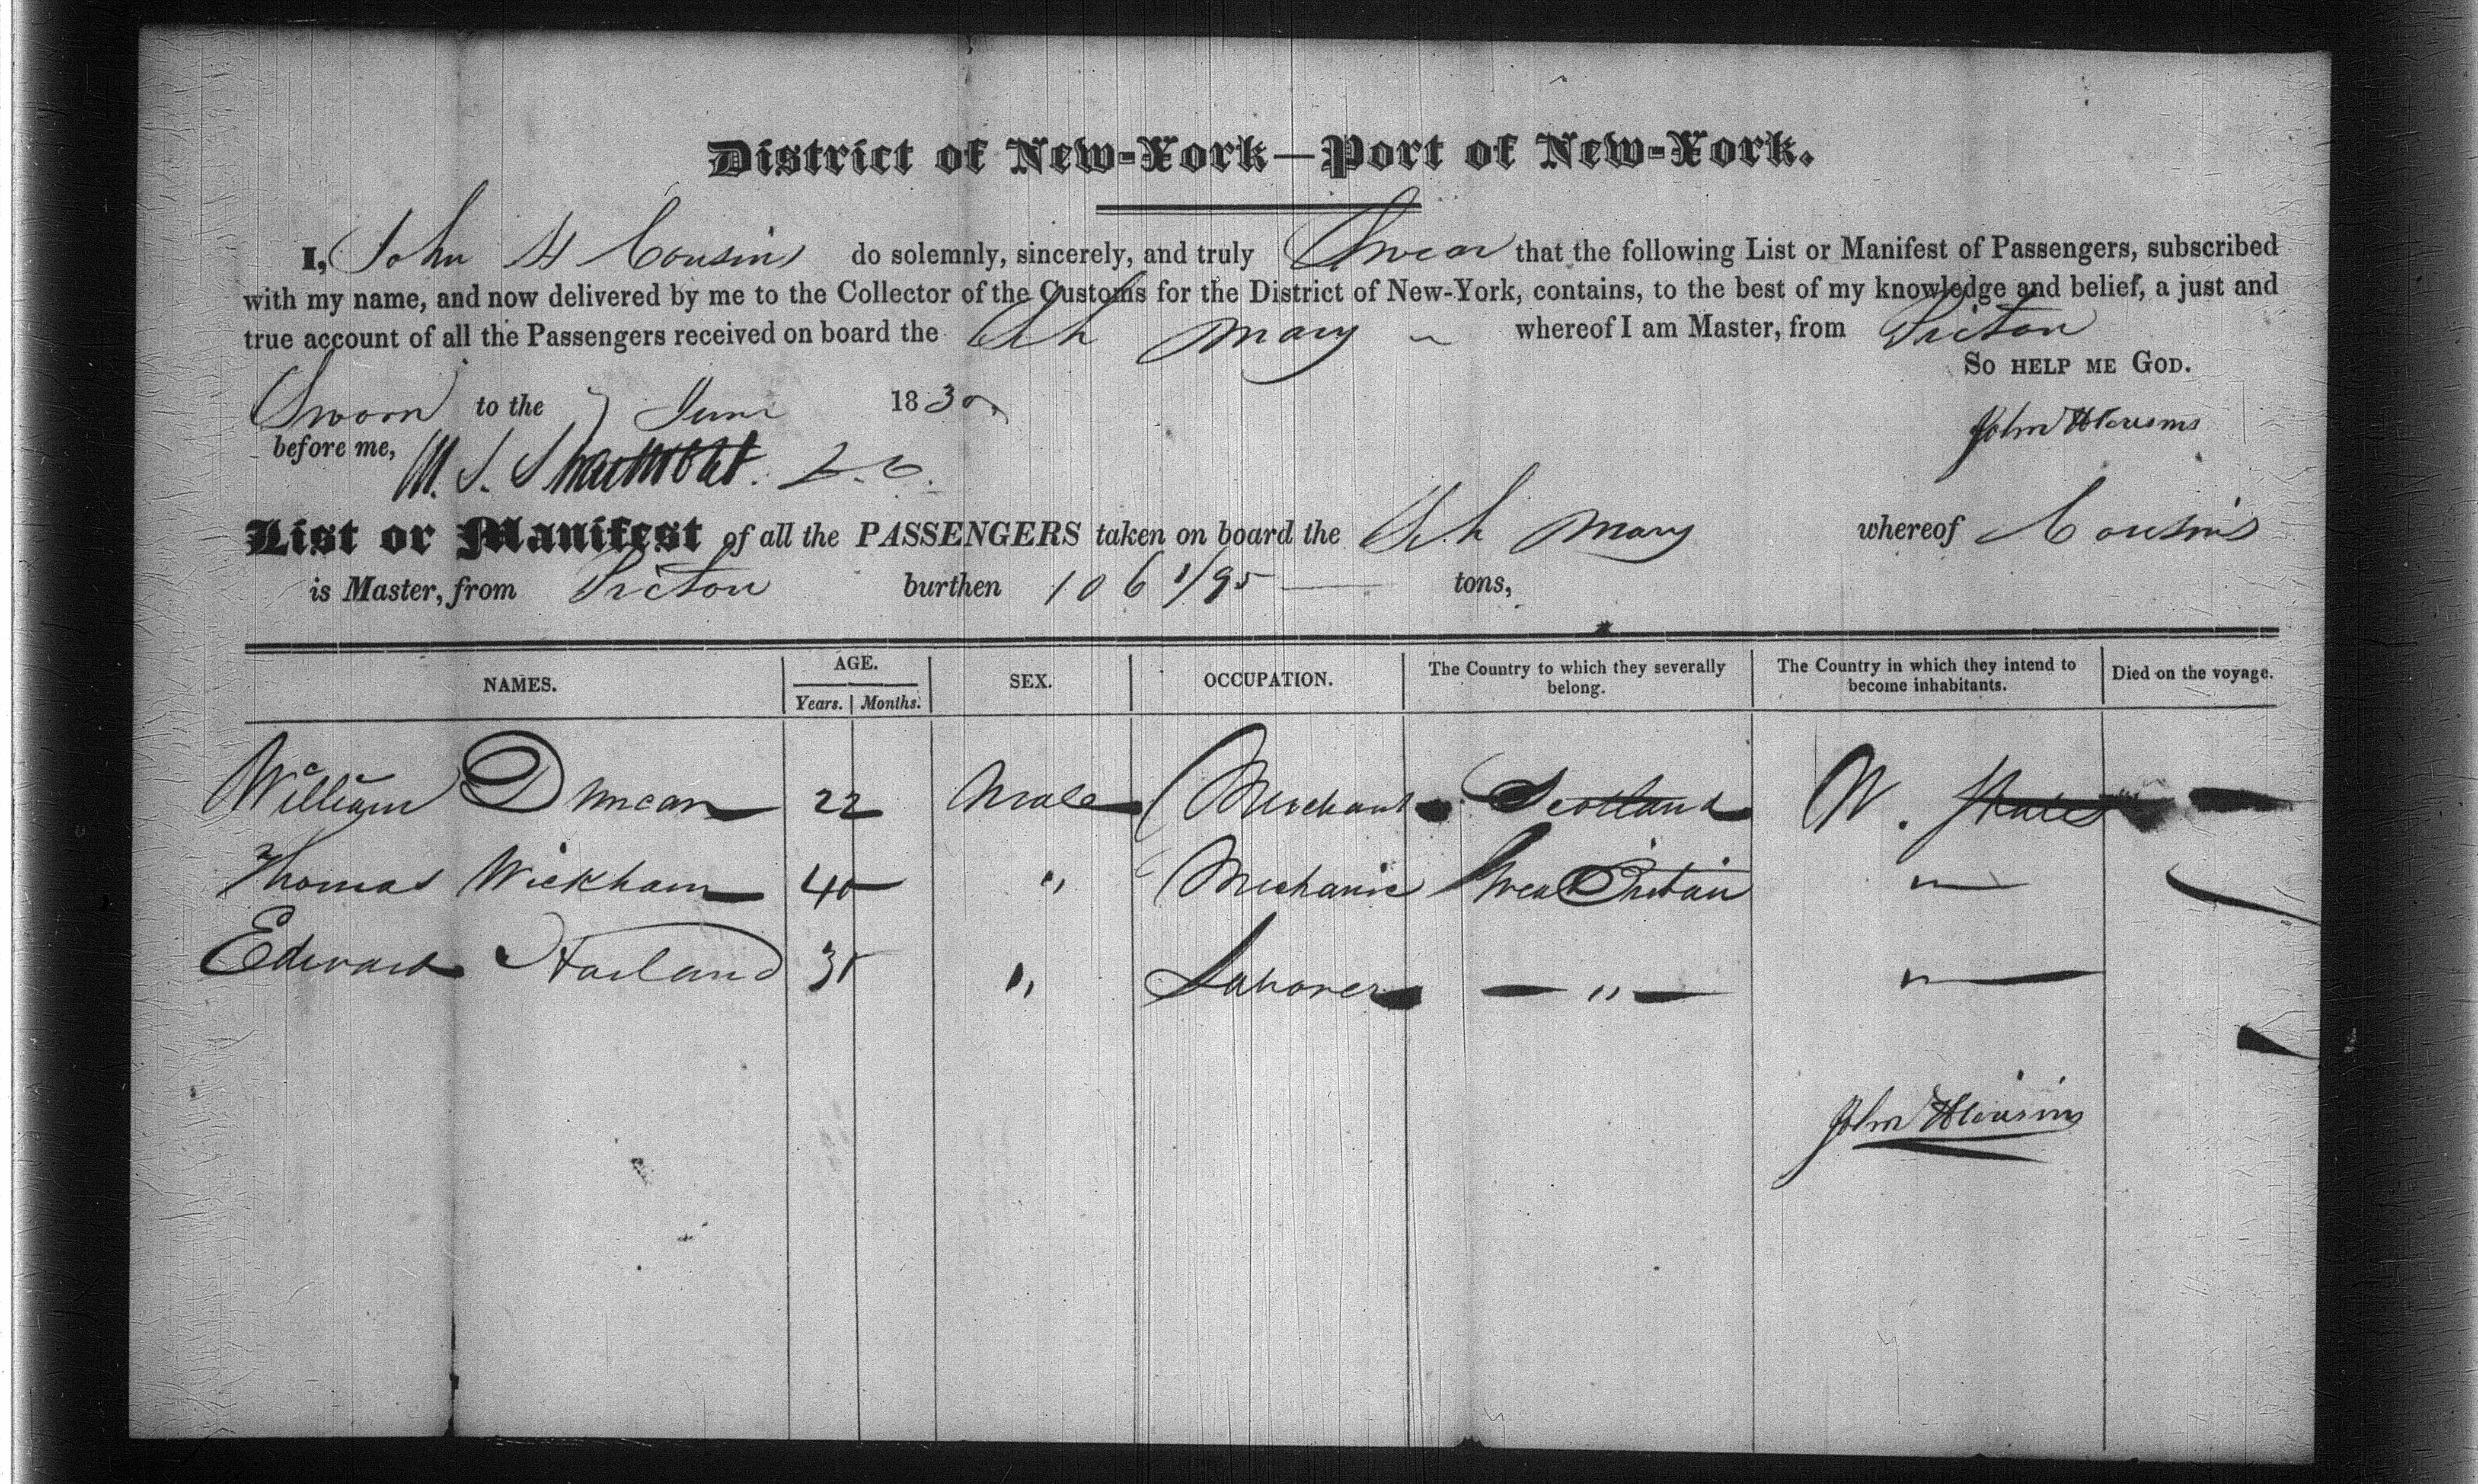 District of New-York—Port of New-York.
I, John H Cousins do solemnly, sincerely, and truly Swear that the following List or Manifest of Passengers, subscribed
with my name, and now delivered by me to the Collector of the Customs for the District of New-York, contains, to the best of my knowledge and belief, a just and
true account of all the Passengers received on board the Sch Mary whereof I am Master, from Pictou
So help me God.
Sworn to the 7 June 1830
John H Cousins
before me, M. S.
List or Manifest of all the PASSENGERS taken on board the Sch Mary whereof Cousins
is Master, from Pictou burthen 106 1/95 tons,
NAMES. AGE. Years. Months. SEX. OCCUPATION. The Country to which they severally belong. The Country in which they intend to become inhabitants. Died on the voyage.
William Duncan 22 Male Merchant Scotland U. States
Thomas Wickham 40 " Mechanic Great Britain "
Edward Harland " Laborer " "
John H Cousins